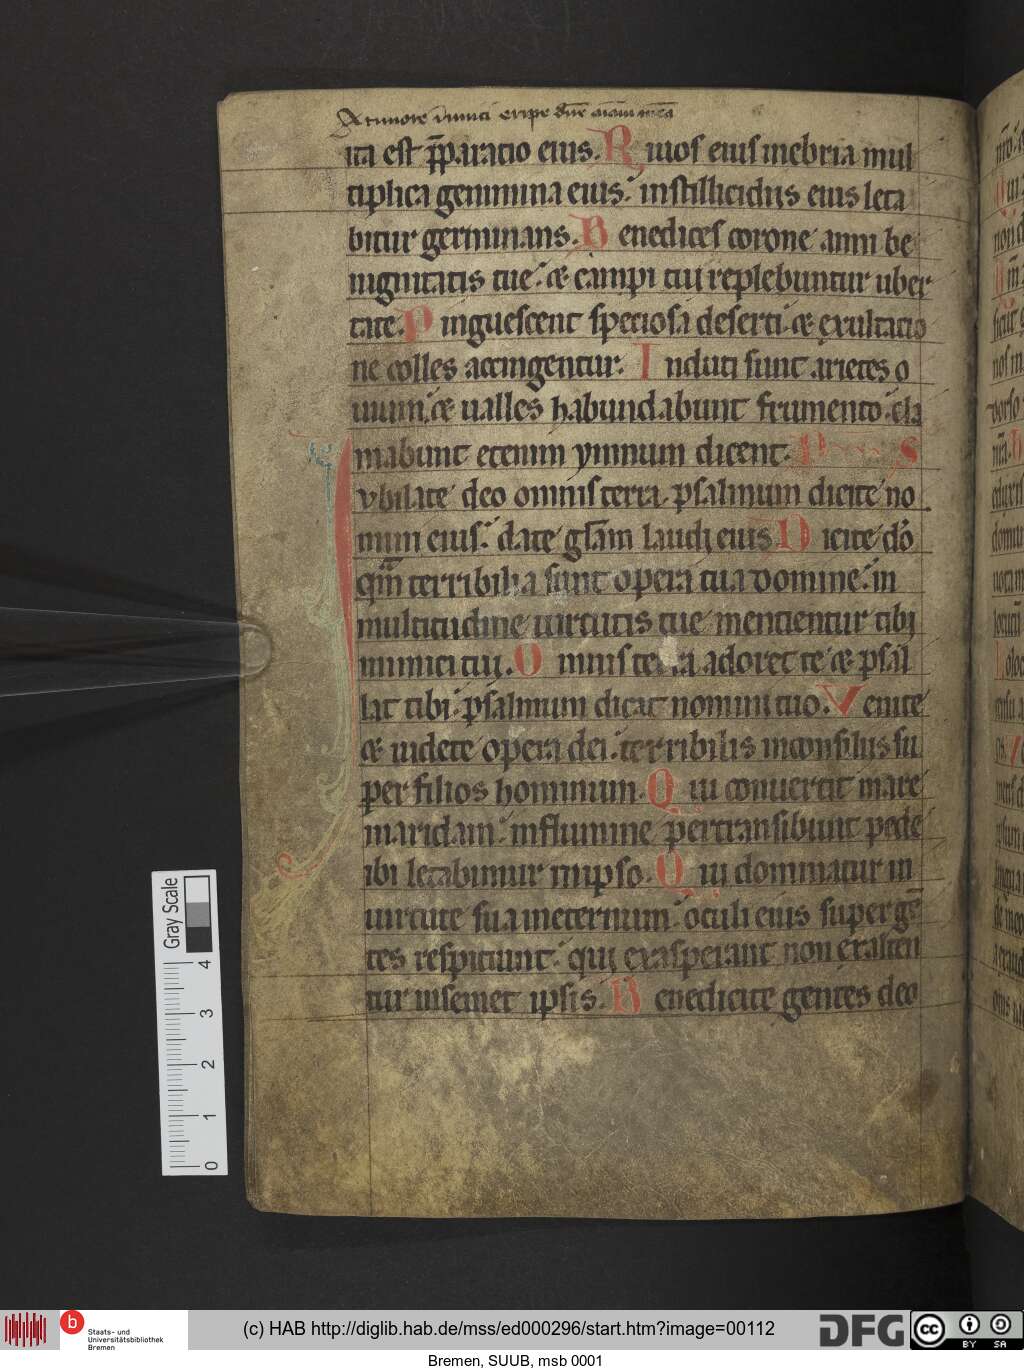 A timore inimici eripe dn̄e aīam meā
ita est p̄paratio eius. Riuos eius inebria mul
tiplica genimina eius. instillicidiis eius leta
bitur germinans. Benedices corone anni be
nignitatis tue. & campi tui replebuntur uber
tate. Pinguescent speciosa deserti & exultatio
ne colles accingentur. Induti sunt arietes o
uium. & ualles habundabunt frumento. cla
mabunt etenim ymnum dicent. S
Iubilate deo omnis terra. psalmum dicite no
mini eius. date gl̄am laudi eius Dicite dō
qm̄ terribilia sunt opera tua domine. in
multitudine uirtutis tue mentientur tibi
inimici tui. Omnis terra adoret te & psal
lat tibi. psalmum dicat nomini tuo. Venite
& uidete opera dei. terribilis inconsiliis su
per filios hominum. Qui conuertit mare
inaridam. influmine pertransibunt pede
ibi letabimur inipso. Qui dominatur in
uirtute sua ineternum. oculi eius super gē
tes respiciunt. qui exasperant non exalten
tur insemet ipsis. Benedicite gentes deo
Gray Scale
4
3
2
1
0
b
Staats- und
Universitätsbibliothek
Bremen
(c) HAB http://diglib.hab.de/mss/ed000296/start.htm?image=00112
DFG
cc
BY SA
Bremen, SUUB, msb 0001